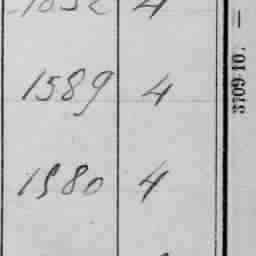 1589 4
1580 4
3709-10. —